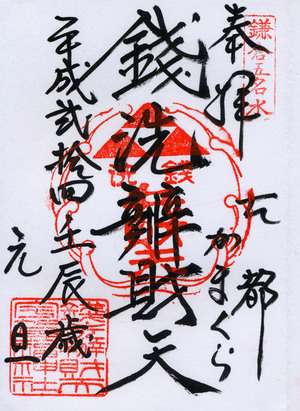 鎌倉五名水
奉拝
古都
かまくら
銭洗辨財天
銭洗
平成弐拾四壬辰歳
元旦